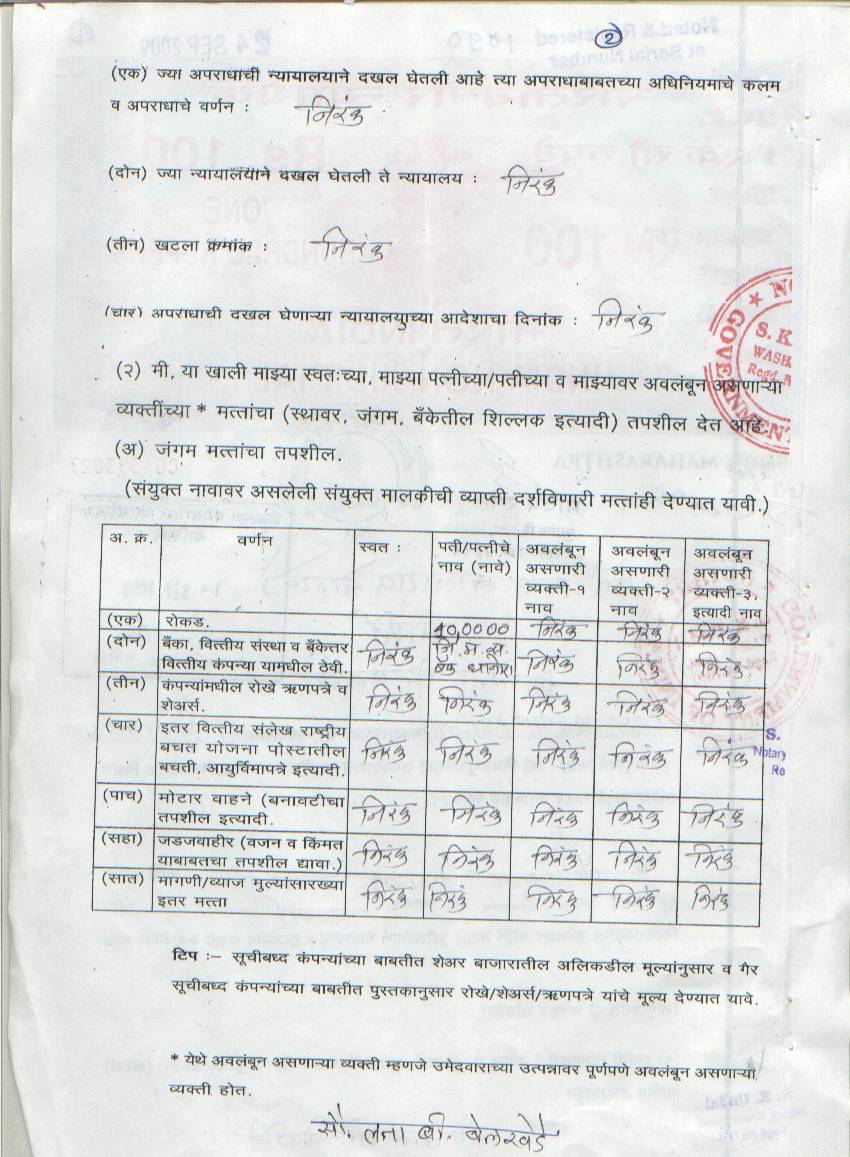 २
(एक) ज्या अपराधाची न्यायालयाने दखल घेतली आहे त्या अपराधाबाबतच्या अधिनियमाचे कलम
व अपराधाचे वर्णन : निरंक
(दोन) ज्या न्यायालयाने दखल घेतली ते न्यायालय : निरंक
(तीन) खटला क्रमांक : निरंक
(चार) अपराधाची दखल घेणाऱ्या न्यायालयाच्या आदेशाचा दिनांक : निरंक
(२) मी, या खाली माझ्या स्वतःच्या, माझ्या पत्नीच्या/पतीच्या व माझ्यावर अवलंबून असणाऱ्या
व्यक्तींच्या * मत्तांचा (स्थावर, जंगम, बँकेतील शिल्लक इत्यादी) तपशील देत आहे.
(अ) जंगम मत्तांचा तपशील.
(संयुक्त नावावर असलेली संयुक्त मालकीची व्याप्ती दर्शविणारी मत्तांही देण्यात यावी.)
अ. क्र. वर्णन स्वत : पती/पत्नीचे अवलंबून अवलंबून अवलंबून
नाव (नावे) असणारी असणारी असणारी
व्यक्ती-१ व्यक्ती-२ व्यक्ती-३,
नाव नाव इत्यादी नाव
(एक) रोकड. निरंक निरंक निरंक
(दोन) बँका, वित्तीय संस्था व बँकेतर
वित्तीय कंपन्या यामधील ठेवी. निरंक निरंक निरंक निरंक
(तीन) कंपन्यांमधील रोखे ऋणपत्रे व
शेअर्स. निरंक निरंक निरंक निरंक निरंक
(चार) इतर वित्तीय संलेख राष्ट्रीय
बचत योजना पोस्टातील निरंक निरंक निरंक निरंक निरंक
बचती, आयुर्विमापत्रे इत्यादी.
(पाच) मोटार वाहने (बनावटीचा
तपशील इत्यादी. निरंक निरंक निरंक निरंक निरंक
(सहा) जडजवाहीर (वजन व किंमत
याबाबतचा तपशील द्यावा.) निरंक निरंक निरंक निरंक निरंक
(सात) मागणी/व्याज मुल्यांसारख्या
इतर मत्ता निरंक निरंक निरंक निरंक निरंक
टिप :– सूचीबध्द कंपन्यांच्या बाबतीत शेअर बाजारातील अलिकडील मूल्यांनुसार व गैर
सूचीबध्द कंपन्यांच्या बाबतीत पुस्तकानुसार रोखे/शेअर्स/ऋणपत्रे यांचे मूल्य देण्यात यावे.
* येथे अवलंबून असणाऱ्या व्यक्ती म्हणजे उमेदवाराच्या उत्पन्नावर पूर्णपणे अवलंबून असणाऱ्या
व्यक्ती होत.
सौ. लता बी. बेलखेडे